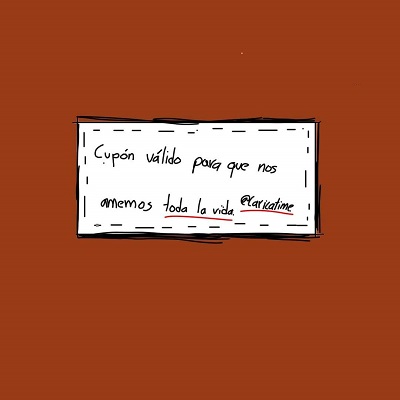 Cupón válido para que nos
amemos toda la vida. @caricatime